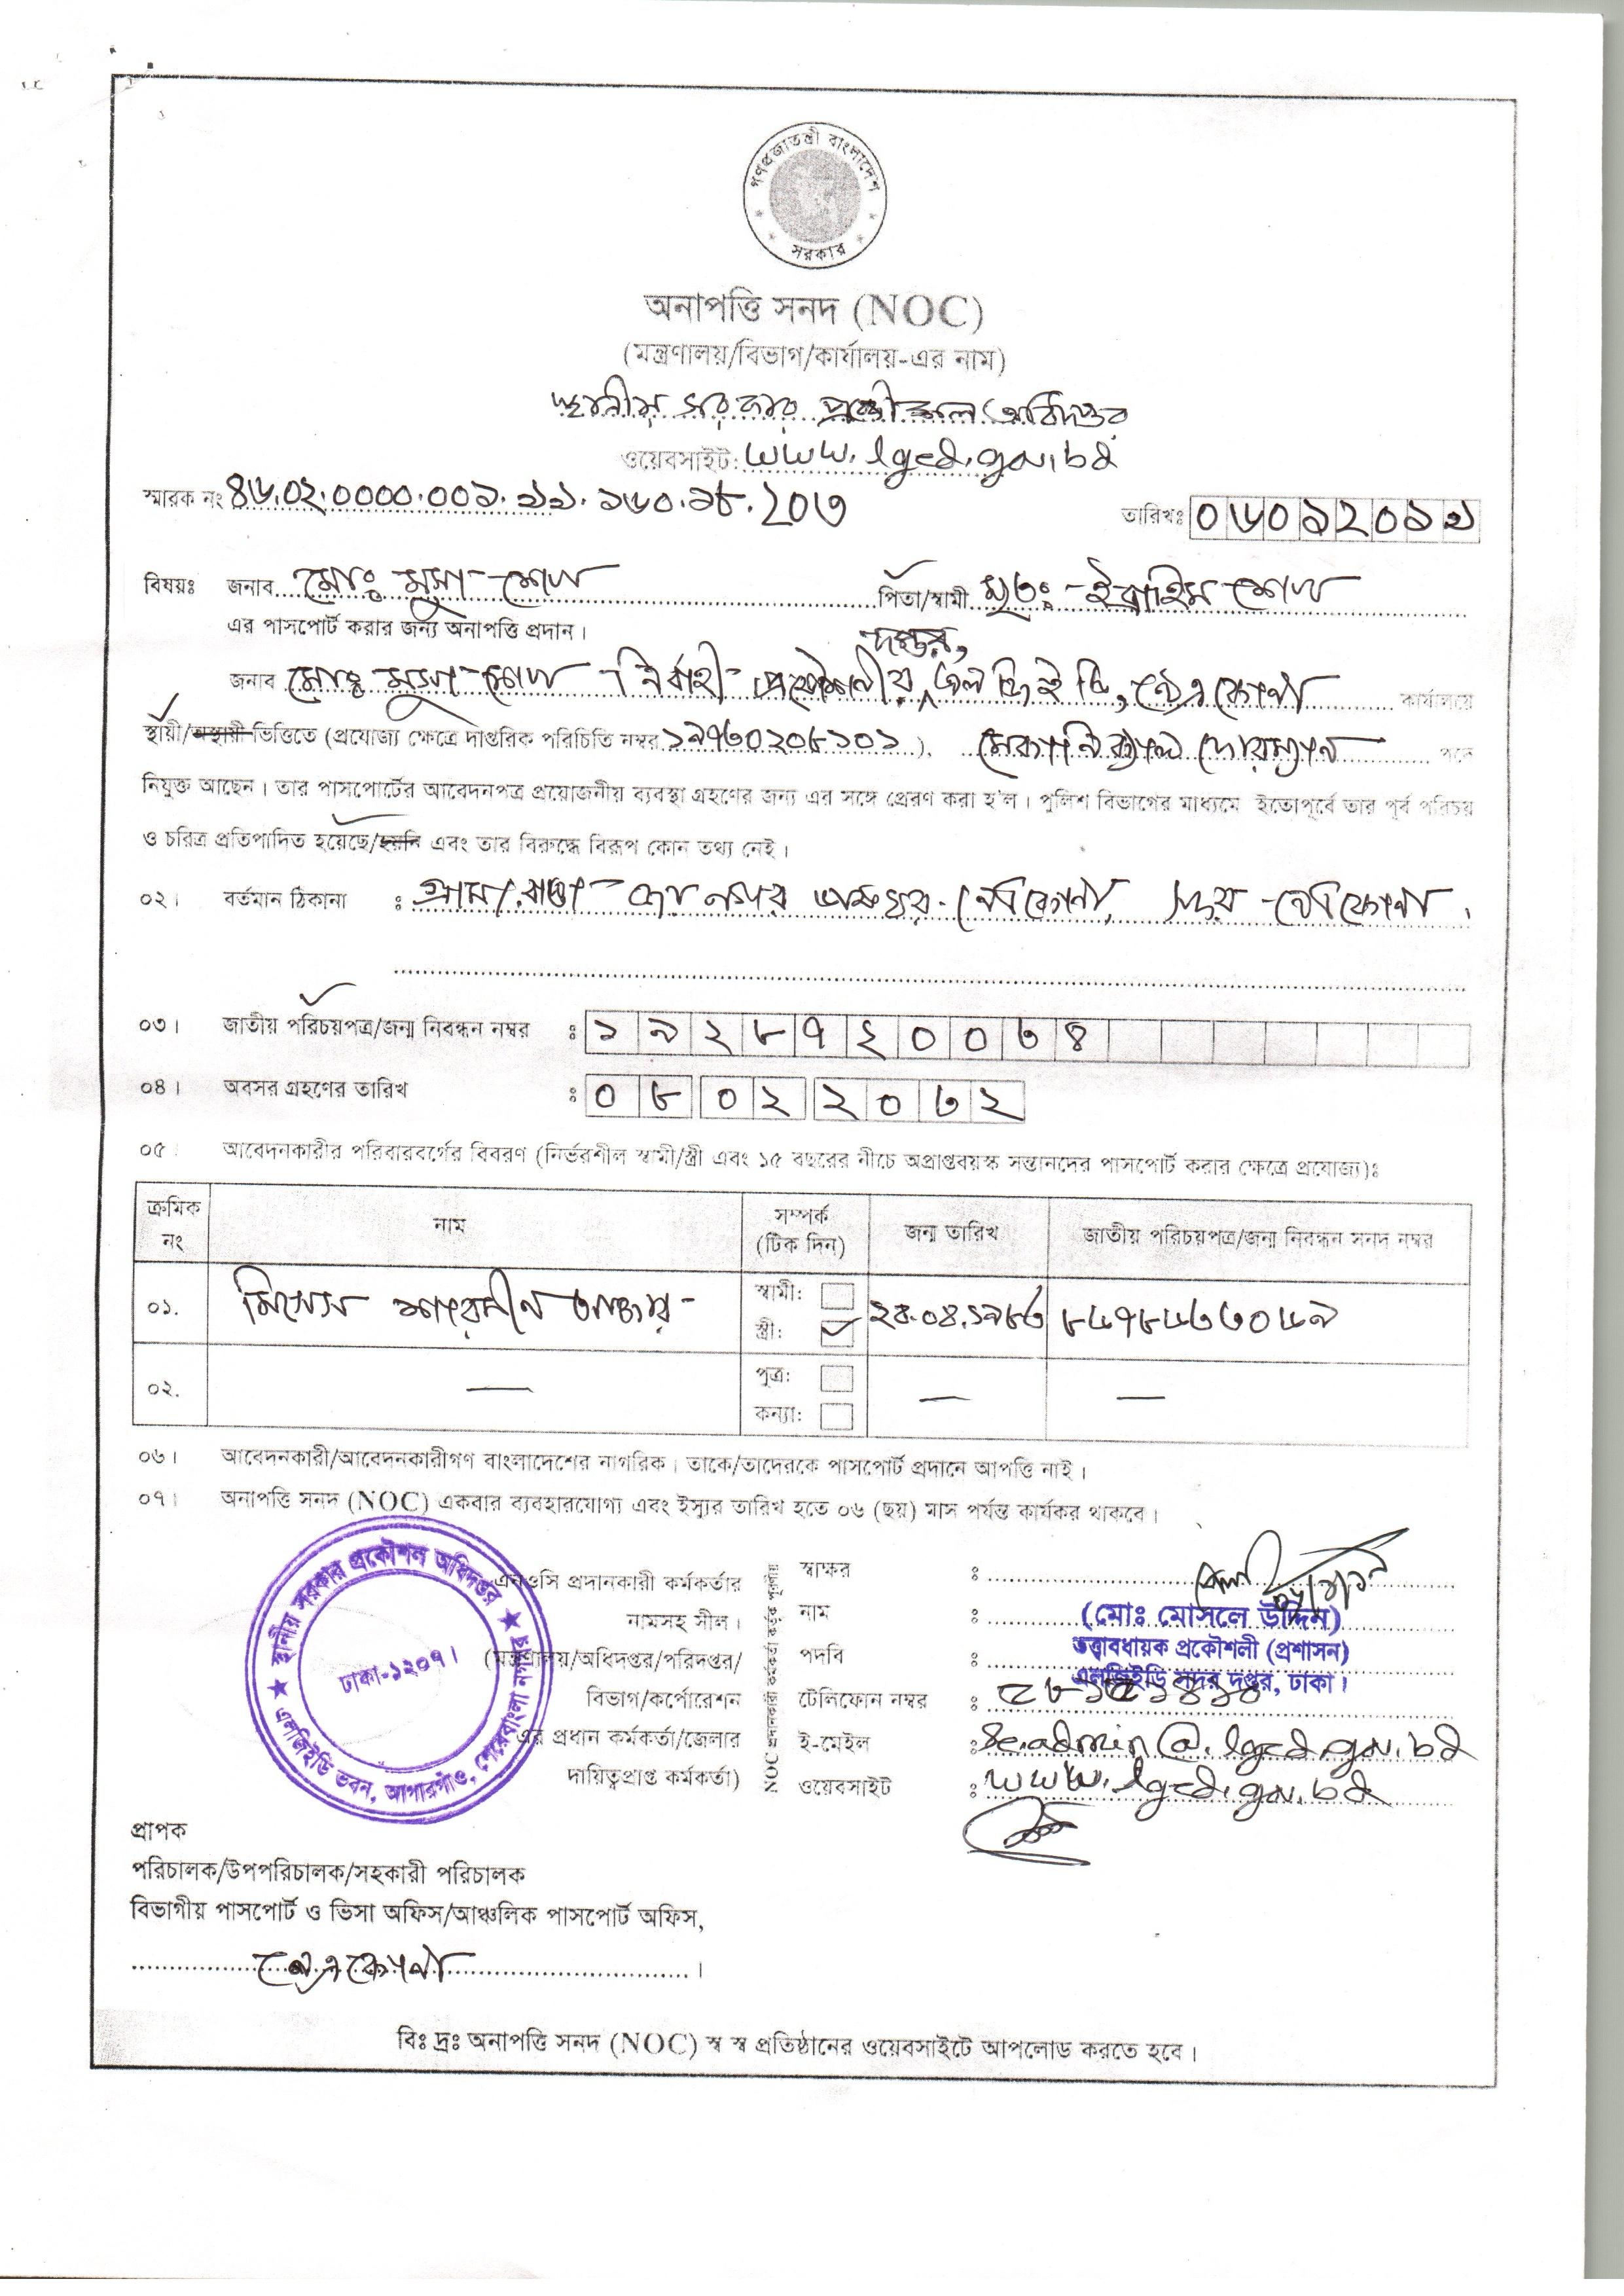 গণপ্রজাতন্ত্রী বাংলাদেশ
সরকার
অনাপত্তি সনদ (NOC)
(মন্ত্রণালয়/বিভাগ/কার্যালয়-এর নাম)
স্থানীয় সরকার প্রকৌশল অধিদপ্তর
ওয়েবসাইট: www.lged.gov.bd
স্মারক নং ৪৬.০২.০০০০.০০১.১১.১৬০.১৮.২০৩
তারিখঃ ০৬০১২০১৯
বিষয়ঃ জনাব মোঃ মুসা শেখ পিতা/স্বামী মৃতঃ ইব্রাহিম শেখ
এর পাসপোর্ট করার জন্য অনাপত্তি প্রদান।
দপ্তর,
জনাব মোঃ মুসা শেখ নির্বাহী প্রকৌশলীর এলজিইডি, নেত্রকোণা কার্যালয়ে
স্থায়ী/অস্থায়ী ভিত্তিতে (প্রযোজ্য ক্ষেত্রে দাপ্তরিক পরিচিতি নম্বর ১৯৭৩০২০৮১০১), মেকানিক্যাল ফোরম্যান পদে
নিযুক্ত আছেন। তার পাসপোর্টের আবেদনপত্র প্রয়োজনীয় ব্যবস্থা গ্রহণের জন্য এর সঙ্গে প্রেরণ করা হ'ল। পুলিশ বিভাগের মাধ্যমে ইতোপূর্বে তার পূর্ব পরিচয়
ও চরিত্র প্রতিপাদিত হয়েছে/হয়নি এবং তার বিরুদ্ধে বিরূপ কোন তথ্য নেই।
০২। বর্তমান ঠিকানা : গ্রাম/রাস্তা- জয়নগর ডাকঘর- নেত্রকোণা, সদর - নেত্রকোণা।
০৩। জাতীয় পরিচয়পত্র/জন্ম নিবন্ধন নম্বর ঃ ১৯২৮৭২০০৩৪
০৪। অবসর গ্রহণের তারিখ ঃ ০৮০২২০৩২
০৫। আবেদনকারীর পরিবারবর্গের বিবরণ (নির্ভরশীল স্বামী/স্ত্রী এবং ১৫ বছরের নীচে অপ্রাপ্তবয়স্ক সন্তানদের পাসপোর্ট করার ক্ষেত্রে প্রযোজ্য)ঃ
ক্রমিক নং নাম সম্পর্ক (টিক দিন) জন্ম তারিখ জাতীয় পরিচয়পত্র/জন্ম নিবন্ধন সনদ নম্বর
০১. মিসেস শারমীন আক্তার স্বামী: স্ত্রী: ২৪.০৪.১৯৮৩ ৮৬৭৮৬৩৩০৬৯
০২. — পুত্র: কন্যা: — —
০৬। আবেদনকারী/আবেদনকারীগণ বাংলাদেশের নাগরিক। তাকে/তাদেরকে পাসপোর্ট প্রদানে আপত্তি নাই।
০৭। অনাপত্তি সনদ (NOC) একবার ব্যবহারযোগ্য এবং ইস্যুর তারিখ হতে ০৬ (ছয়) মাস পর্যন্ত কার্যকর থাকবে।
স্থানীয় সরকার প্রকৌশল অধিদপ্তর
ঢাকা-১২০৭।
এলজিইডি ভবন, আগারগাঁও, শেরেবাংলা নগর
এনওসি প্রদানকারী কর্মকর্তার
নামসহ সীল।
(মন্ত্রণালয়/অধিদপ্তর/পরিদপ্তর/
বিভাগ/কর্পোরেশন
এর প্রধান কর্মকর্তা/জেলার
দায়িত্বপ্রাপ্ত কর্মকর্তা)
NOC প্রদানকারী কর্মকর্তা কর্তৃক পূরণীয়
স্বাক্ষর ঃ
নাম ঃ (মোঃ মোসলে উদ্দিন)
পদবি ঃ তত্ত্বাবধায়ক প্রকৌশলী (প্রশাসন)
এলজিইডি সদর দপ্তর, ঢাকা।
টেলিফোন নম্বর ঃ
ই-মেইল ঃ se.admin@lged.gov.bd
ওয়েবসাইট ঃ www.lged.gov.bd
প্রাপক
পরিচালক/উপপরিচালক/সহকারী পরিচালক
বিভাগীয় পাসপোর্ট ও ভিসা অফিস/আঞ্চলিক পাসপোর্ট অফিস,
নেত্রকোণা।
বিঃ দ্রঃ অনাপত্তি সনদ (NOC) স্ব স্ব প্রতিষ্ঠানের ওয়েবসাইটে আপলোড করতে হবে।